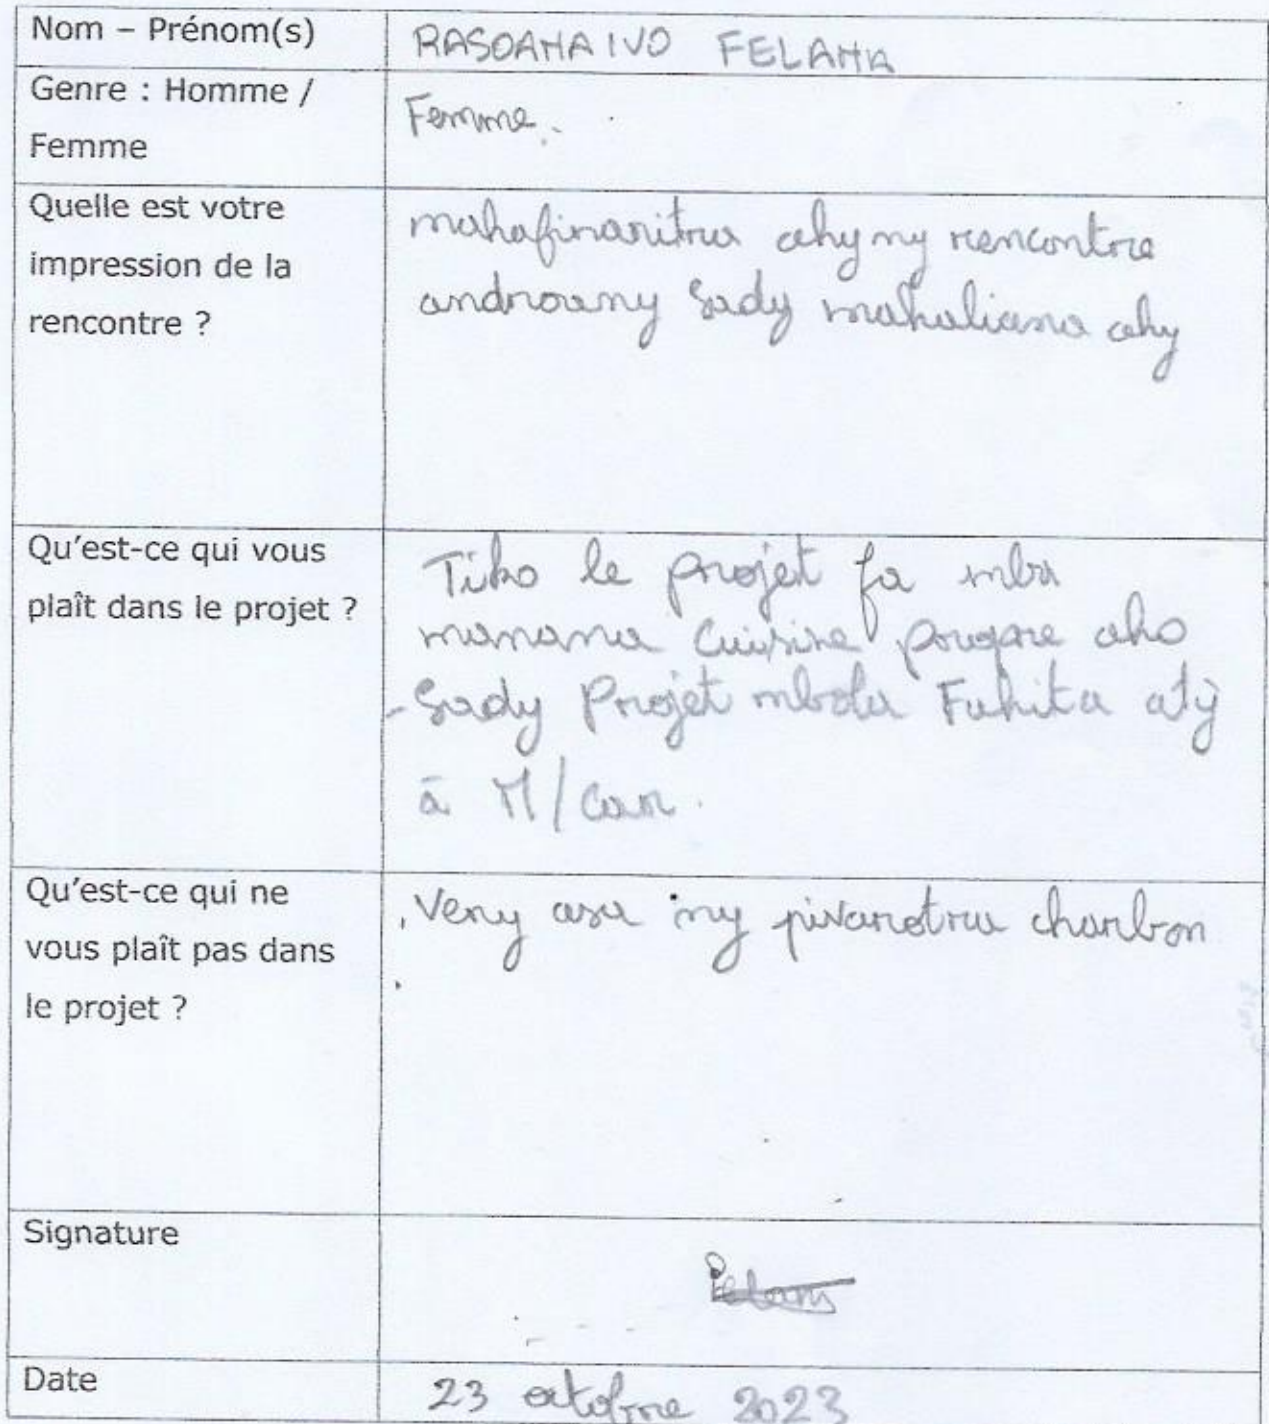 Nom – Prénom(s)
RASOAHAIVO FELAHA
Genre : Homme /
Femme
Femme.
Quelle est votre
impression de la
rencontre ?
mahafinaritra ahy ny rencontre
androany sady mahaliana ahy
Qu'est-ce qui vous
plaît dans le projet ?
Tiko le projet fa mba
manana Cuisine propre aho
- Sady Projet mbola Fahita aty
à M/car.
Qu'est-ce qui ne
vous plaît pas dans
le projet ?
Very asa ny pivarotra charbon
Signature
Date
23 octobre 2023